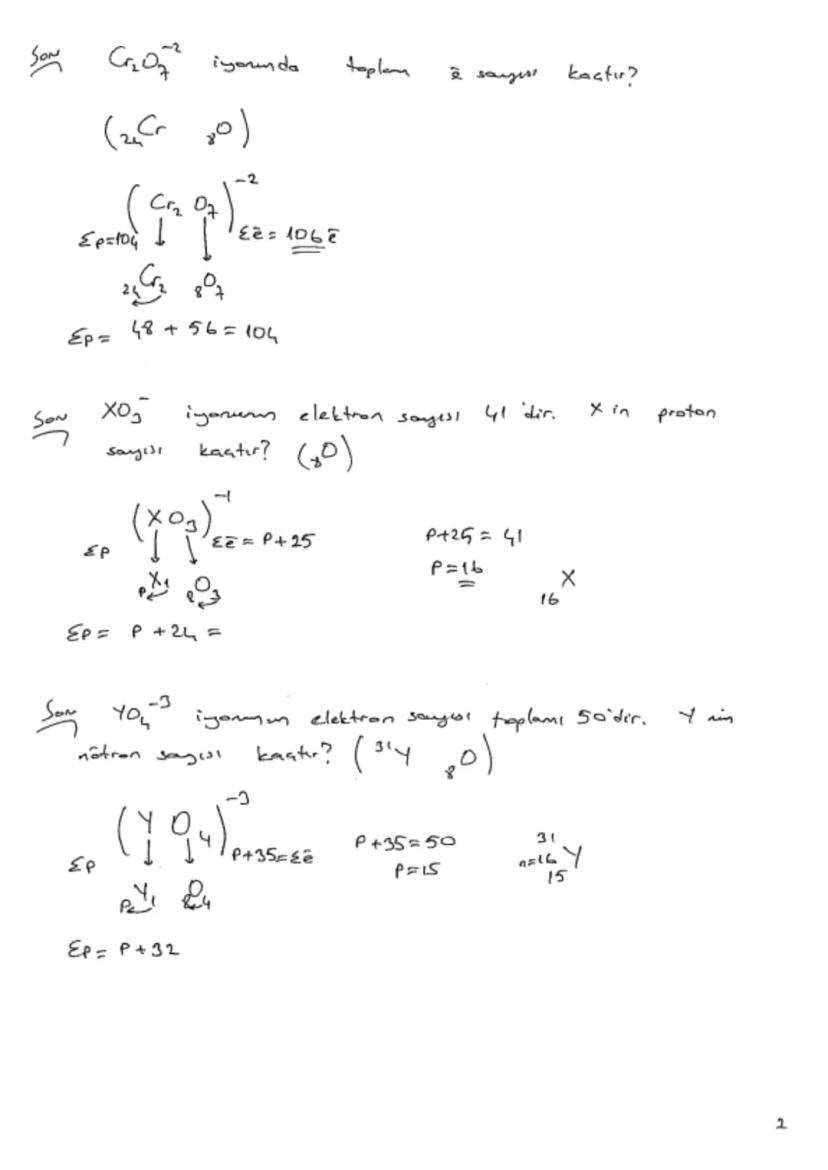 Soru Cr₂O₇⁻² iyonunda toplam ē sayısı kaçtır?
(₂₄Cr ₈O)
(Cr₂ O₇)⁻²
Σp=104 Σē = 106 ē
₂₄Cr₂ ₈O₇
Σp = 48 + 56 = 104
Soru XO₃⁻ iyonunun elektron sayısı 41 'dir. X in proton
sayısı kaçtır? (₈O)
(XO₃)⁻¹
Σp Σē = P+25 P+25 = 41
P=16
ₚX₁ ₈O₃ ₁₆X
Σp = P + 24 =
Soru YO₄⁻³ iyonunun elektron sayısı toplamı 50'dir. Y nin
nötron sayısı kaçtır? (³¹Y ₈O)
(Y O₄)⁻³
Σp P+35=Σē P+35=50 31
P=15 n=16 Y
15
ₚY₁ ₈O₄
Σp = P+32
2